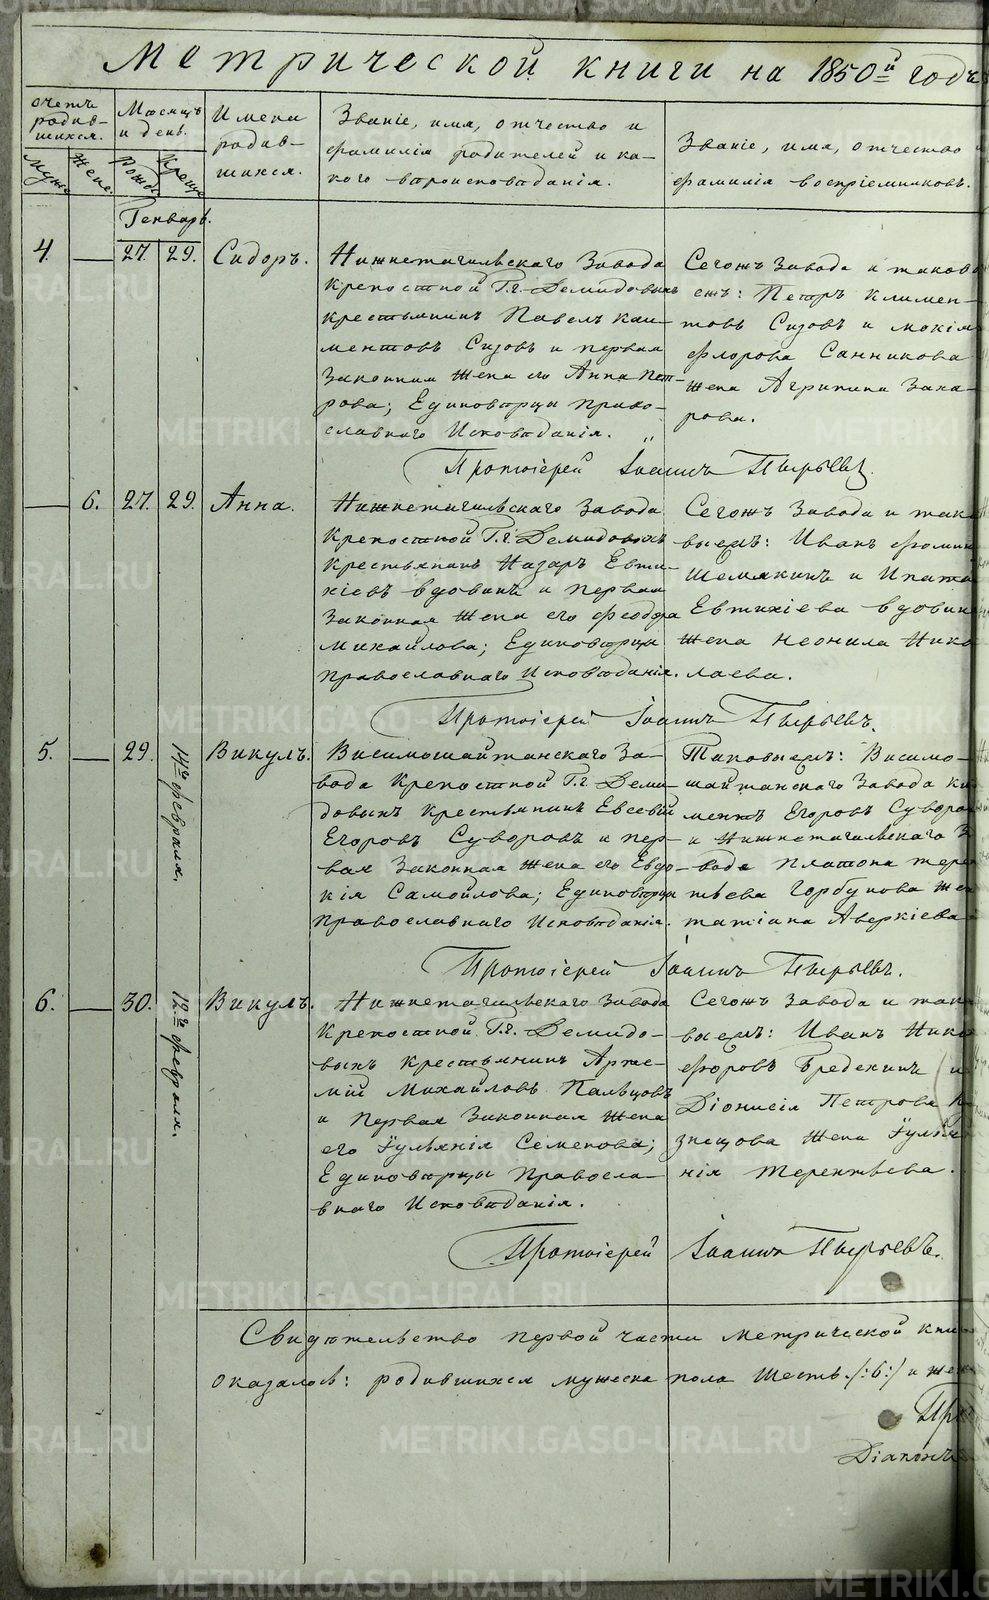 Метрической книги на 1850й годъ
Счетъ родив-шихся.
Муже
Жене.
Мѣсяцъ и день.
Рожд.
Креще
Имена
родив-
шихся.
Званіе, имя, отчество и
фамилія родителей и ка-
кого вѣроисповѣданія.
Званіе, имя, отчество
фамилія воспріемниковъ.
Генварь.
4. — 27. 29. Сидоръ.
Нижнетагильскаго Завода
Крепостной Г.г. Демидовыхъ
крестьянинъ Павелъ Кли-
ментовъ Сизовъ и первая
Законная жена его Анна Пет-
рова; Единовѣрцы Право-
славнаго Исповѣданія. „
Сегожъ Завода и таково
ежъ: Петръ Климен-
товъ Сизовъ и Мокія
Флорова Санникова
жена Агрипина Заха-
рова.
Протоіерей Іоаннъ Пырьевъ.
— 6. 27. 29. Анна.
Нижнетагильскаго Завода
Крепостной Г.г. Демидовыхъ
Крестьянинъ Назаръ Евти-
хіевъ Вдовинъ и первая
Законная жена его Феодора
Михайлова; Единовѣрцы
Православнаго Исповѣданія.
Сегожъ Завода и тако
выежъ: Иванъ Фомин
Шемякинъ и Ипата
Евтихіева Вдовин
жена Неонила Нико
лаева.
Протоіерей Іоаннъ Пырьевъ.
5. — 29. 14го февраля. Викулъ.
Висимошайтанскаго За-
вода Крепостной Г.г. Деми-
довыхъ Крестьянинъ Евсевій
Егоровъ Суворовъ и пер-
вая Законная жена его Евдо-
кія Самойлова; Единовѣрцы
Православнаго Исповѣданія.
Таковыежъ: Висимо-
шайтанскаго Завода Кли
ментъ Егоровъ Суворов
и Нижнетагильскаго З
вода Платона Терен
тьева Горбунова же
Татіана Аверкіева
Протоіерей Іоаннъ Пырьевъ.
6. — 30. 12го февраля. Викулъ.
Нижнетагильскаго Завода
Крепостной Г.г. Демидо-
выхъ Крестьянинъ Арте-
мій Михайловъ Пальцовъ
и Первая Законная Жена
его Іульянія Семенова;
Единовѣрцы Правосла-
внаго Исповѣданія.
Сегожъ Завода и так
выежъ: Иванъ Ники
форовъ Бредихинъ и
Діонисія Петрова К
знецова Жена Іульян
нія Терентьева.
Протоіерей Іоаннъ Пырьевъ.
Свидѣтельство первой части метрической кни
оказалось: родившихся мужеска пола шесть /:6:/ и жен
Про
Діаконъ
METRIKI.GASO-URAL.RU